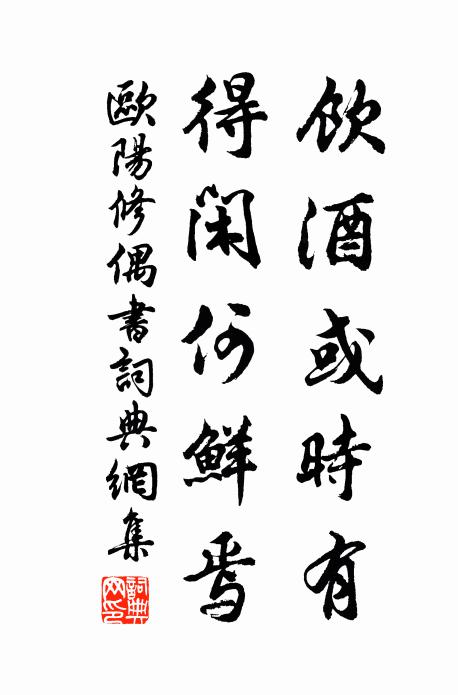 飲酒或時有
得閑何鮮焉
歐陽修偶書詞典網集
詞典網印